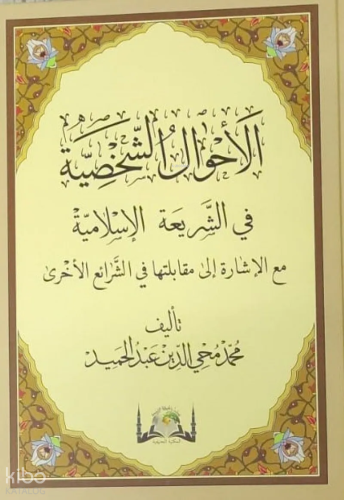 الأحوال الشخصية
في الشريعة الإسلامية
مع الإشارة إلى مقابلتها في الشرائع الأخرى
تأليف
محمد محيي الدين عبد الحميد
kitap
KATALOĞU